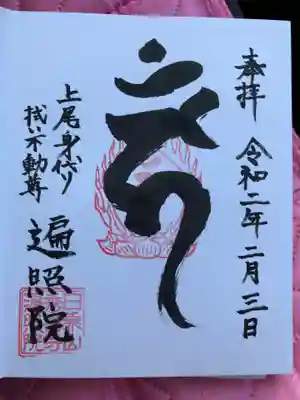 奉拝　令和二年二月三日
上尾身代り
拭い不動尊
遍照院